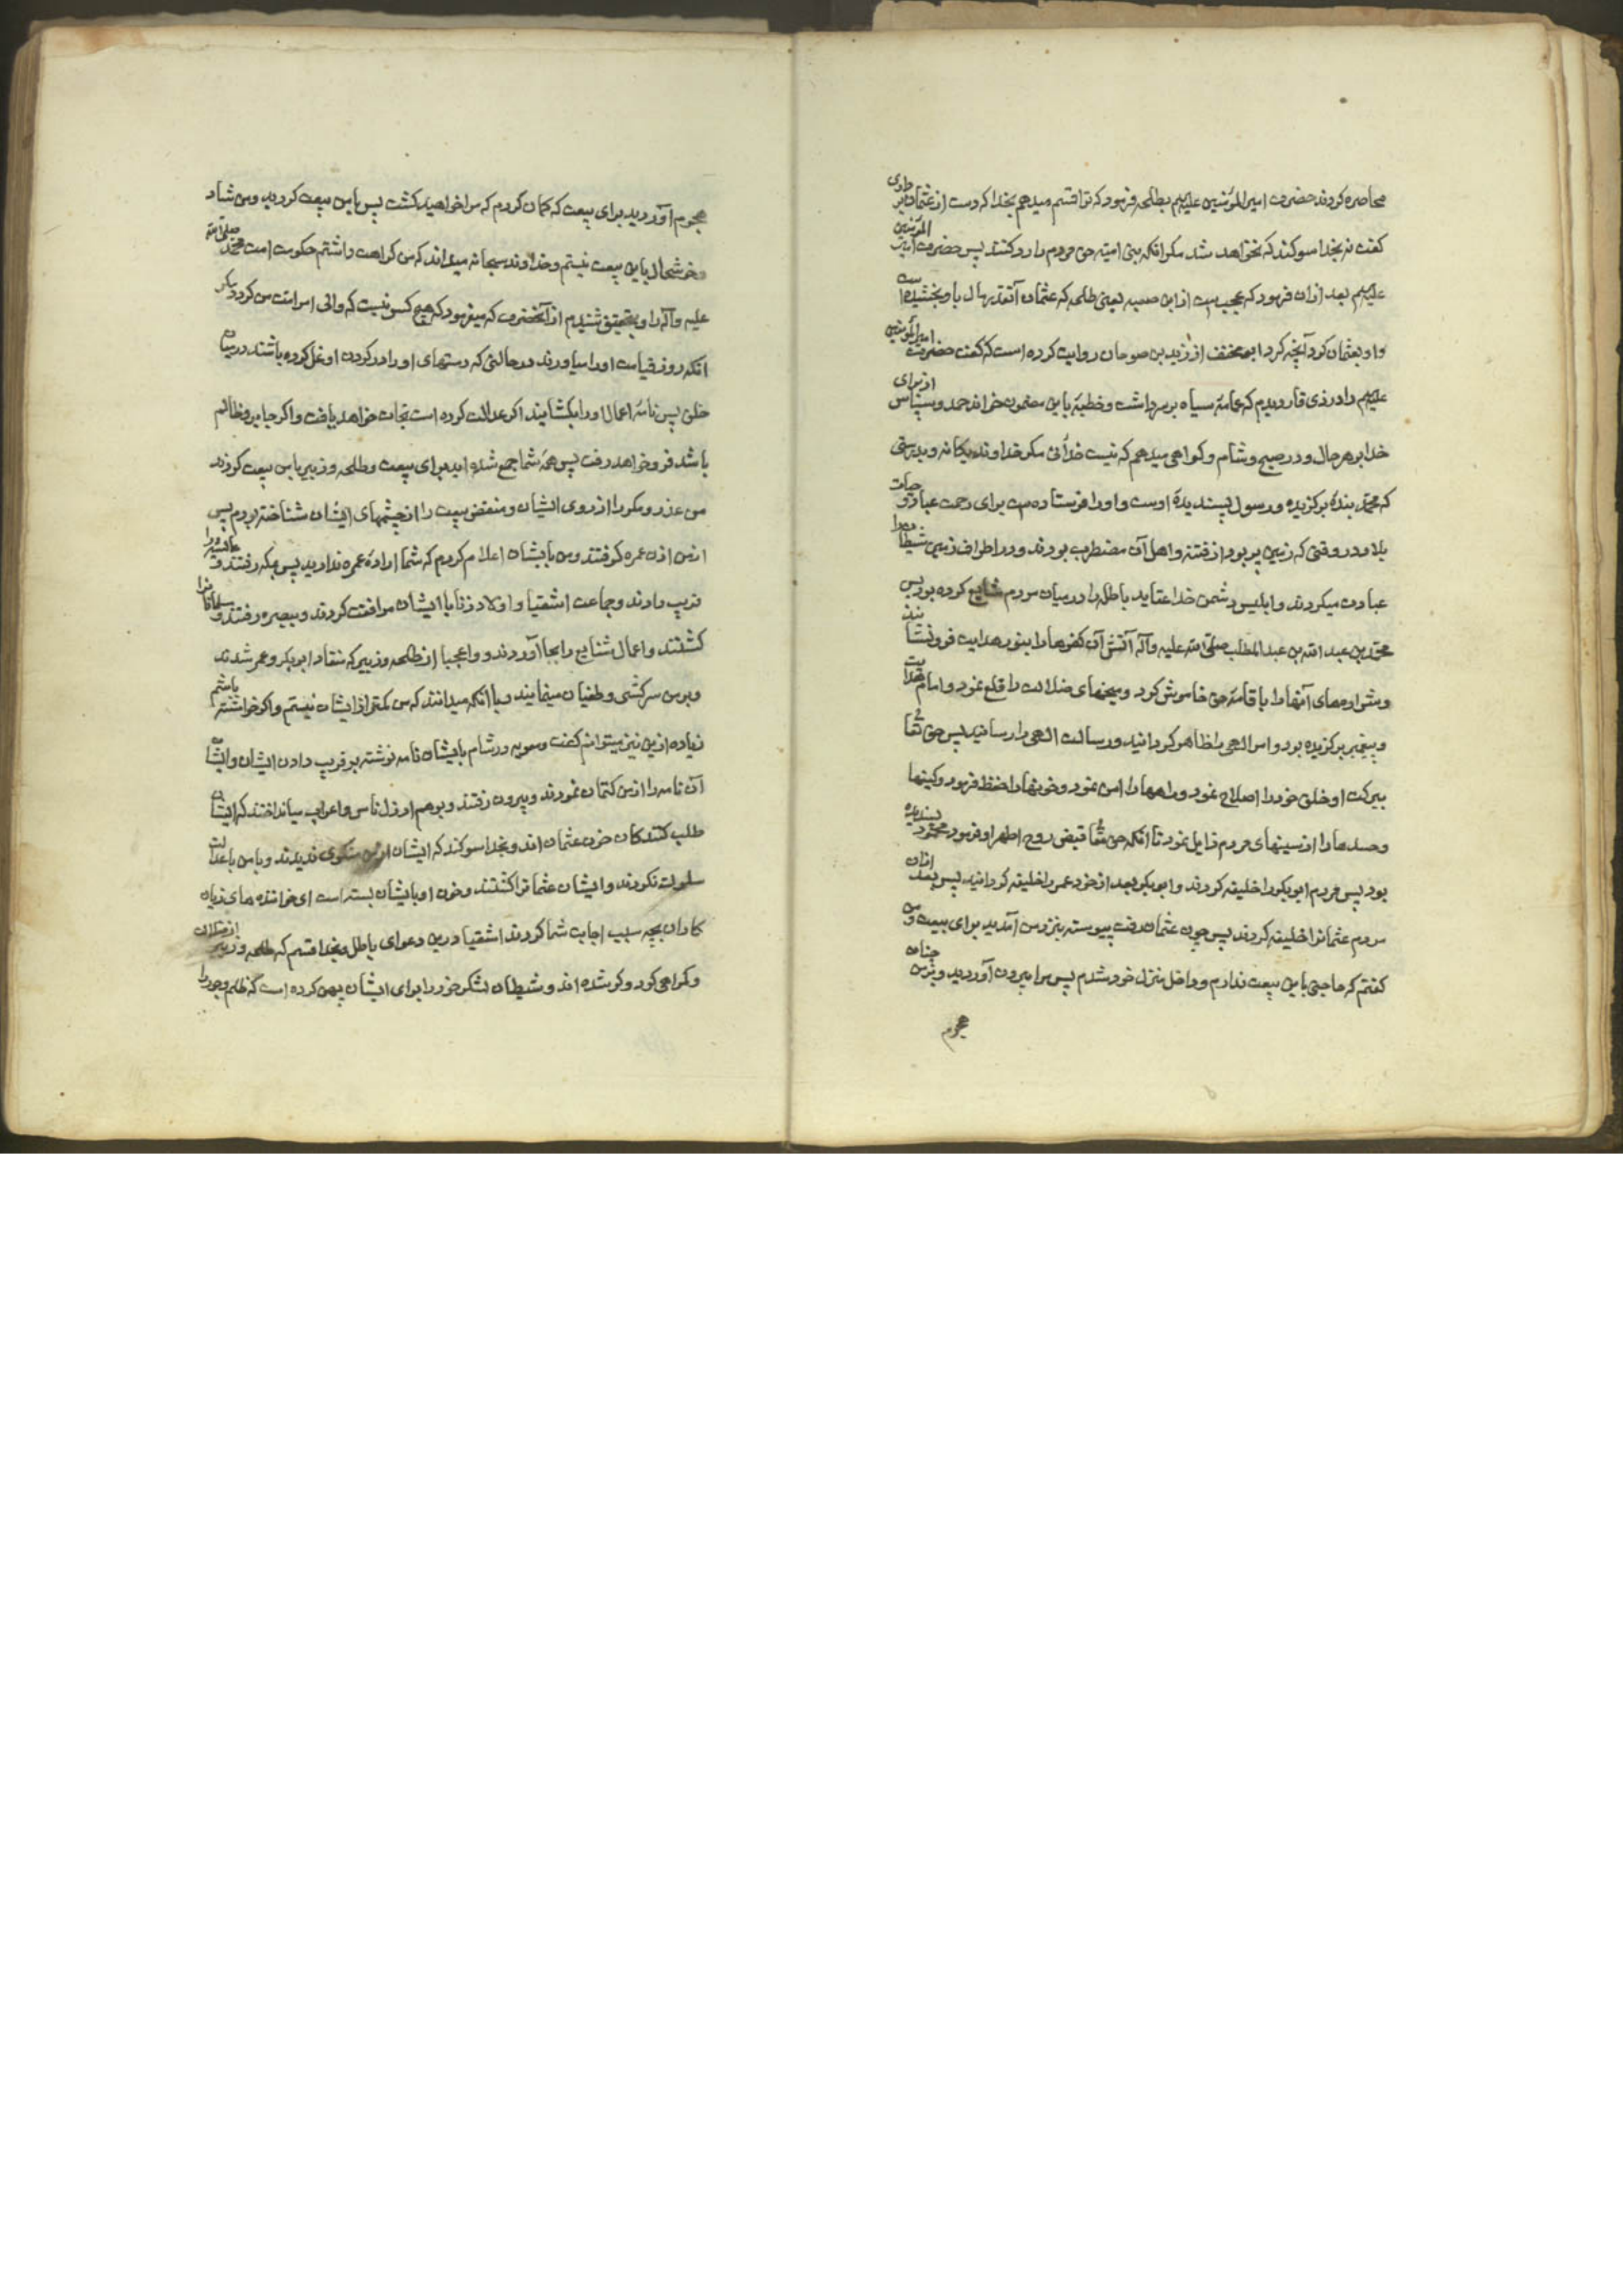 محاصره کردند حضرت امیر المؤمنین علیهم بطلحه فرمود که ترا قسم میدهم بخدا که دست از عثمان برداری
گفت نه بخدا سوکند که نخواهد شد مکر انکه بنی امیه حق مردم را رد کنند پس حضرت امیر المؤمنین
علیهم بعد ازان فرمود که عجیب است از ابن صعبه یعنی طلحه که عثمان آنقدر مال باو بخشیده است
واو بعثمان کرد آنچه کرد ابو مخنف از زید بن صوحان روایت کرده است که گفت حضرت امیر المؤمنین
علیهم را در ذی قار دیدم که عمامهٔ سیاه بر سر داشت و خطبهٔ باین مضمون خواند حمد و سپاس از برای
خدا بر هر حال و در صبح و شام و کواهی میدهم که نیست خدائی مکر خداوند یکانه و بدرستی
که محمد بندهٔ برکزیده و رسول پسندیدهٔ اوست و او را فرستاده است برای رحمت عباد و حیات
بلاد در وقتی که زمین پر بود از فتنه و اهل آن مضطرب بودند و در اطراف زمین شیطان را
عبادت میکردند و ابلیس دشمن خدا عقاید باطل را در میان مردم شایع کرده بود پس
محمد بن عبد الله بن عبد المطلب صلی الله علیه وآله آتش آن کفرها را بنور هدایت فرو نشانید
و شرارههای آنها را باقامهٔ حق خاموش کرد و میخهای ضلالت را قلع نمود و امام هدایت
و پیغمبر برکزیده بود و امر الهی را ظاهر کردانید و رسالت الهی را رسانید پس حق تعالی
ببرکت او خلق خود را اصلاح نمود و راهها را امن نمود و خونها را حفظ فرمود و کینها
و حسدها را از سینهای مردم زایل نمود تا انکه حق تعالی قبض روح اطهر او فرمود محمود پسندیده
بود پس مردم ابو بکر را خلیفه کردند و ابو بکر بعد از خود عمر را خلیفه کردانید پس بعد ازان
مردم عثمانرا خلیفه کردند پس چون عثمان رفت پیوسته بنزد من آمدید برای بیعت و من
کفتم که حاجتی باین بیعت ندارم و داخل منزل خود شدم پس مرا بیرون آوردید و بر من چنان
هجوم
هجوم آوردید برای بیعت که کمان کردم که مرا خواهید کشت پس با من بیعت کردید و من شاد
و خوشحال باین بیعت نیستم و خداوند سبحانه میداند که من کراهت داشتم حکومت امت محمد صلی الله
علیه وآله را و بتحقیق شنیدم از آنحضرت که میفرمود که هیچ کس نیست که والی امر امت من کردد مکر
انکه روز قیامت او را میاورند در حالتی که دستهای او را در کردن او غل کرده باشند در میان
خلق پس نامهٔ اعمال او را بکشایند اکر عدالت کرده است نجات خواهد یافت و اکر جابر و ظالم
باشد فرو خواهد رفت پس همه شما جمع شده اید برای بیعت و طلحه و زبیر با من بیعت کردند
من غدر و مکر را از روی ایشان و نقض بیعت را از چشمهای ایشان شناخته بودم پس
از من اذن عمره کرفتند و من بایشان اعلام کردم که شما ارادهٔ عمره ندارید پس بمکه رفتند و عایشه را
فریب دادند و جماعت اشقیا و اولاد زنا با ایشان موافقت کردند و ببصره رفتند و مسلمانانرا
کشتند و اعمال شنایع را بجا آوردند و واعجبا از طلحه و زبیر که منقاد ابو بکر و عمر شدند
و بر من سرکشی و طغیان مینمایند و با آنکه میدانند که من کمتر از ایشان نیستم و اکر خواسته باشم
زیاده ازین نیز میتوانم کفت و معویه در شام بایشان نامه نوشته بر فریب دادن ایشان و ایشان
آن نامه را از من کتمان نمودند و بیرون رفتند و بوهم ارذل ناس و اعراب میانداختند که ایشان
طلب کنندکان خون عثمان اند و بخدا سوکند که ایشان از من منکری ندیدند و با من بعدالت
سلوک نکردند و ایشان عثمانرا کشتند و خون او بایشان بسته است ای خوانندههای زیان
کاران بچه سبب اجابت شما کردند اشقیا درین دعوای باطل و بخدا قسم که طلحه و زبیر از ضلالت
و کمراهی کور و کر شده اند و شیطان لشکر خود را برای ایشان پهن کرده است که ظلم و جور را